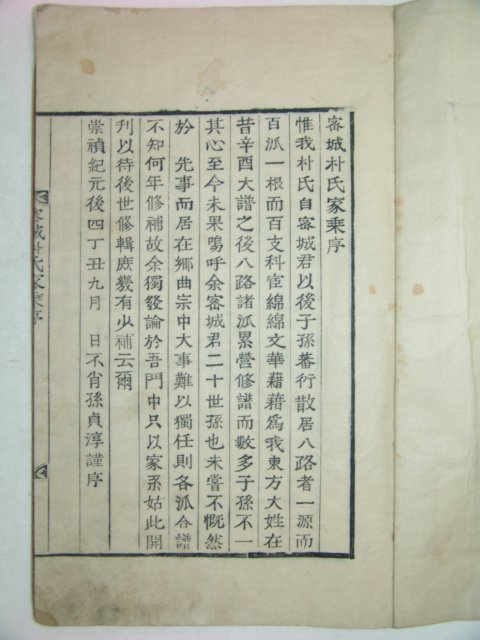 密城朴氏家乘序
惟我朴氏自密城君以後子孫蕃衍散居八路者一源而
百泒一根而百支科宦綿綿文華藉藉爲我東方大姓在
昔辛酉大譜之後八路諸泒累營修譜而數多子孫不一
其心至今未果嗚呼余密城君二十世孫也未嘗不慨然
於　先事而居在鄉曲宗中大事難以獨任則各泒合譜
不知何年修補故余獨發論於吾門中只以家系姑此開
刋以待後世修輯庶幾有少補云爾
崇禎紀元後四丁丑九月　日不肖孫貞淳謹序
密城朴氏家乘序